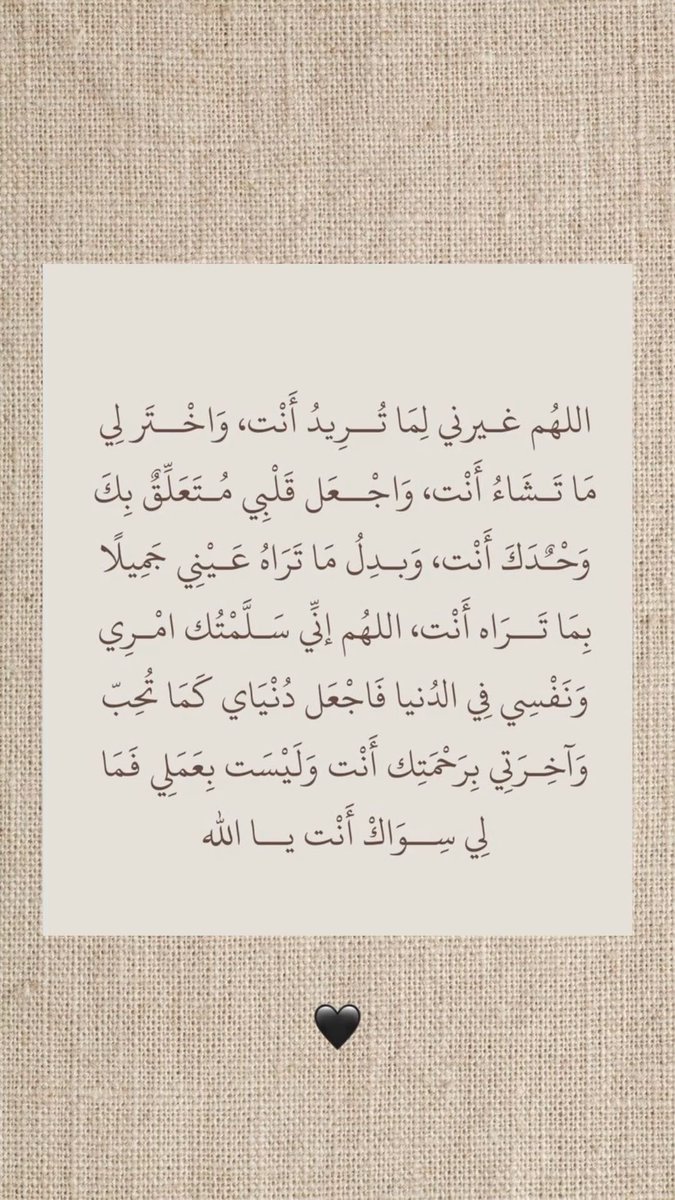 اللهُم غــيرني لِمَا تُـــرِيدُ أَنْت، وَاخْـــتَر لِي
مَا تَــشَاءُ أَنْت، وَاجْـــعَل قَلْبِي مُــتَعَلِّقٌ بِكَ
وَحْـٌدَكَ أَنْت، وَبــدِلُ مَا تَرَاهُ عَــيْنِي جَمِيلًا
بِمَا تَـــرَاه أَنْت، اللهُم إنِّي سَــلَّمْتُك امْــرِي
وَنَفْسِي فِي الدُنيا فَاجْعَل دُنْيَاي كَمَا تُحِبّ
وَآخِــرَتِي بِرَحْمَتِك أَنْت وَلَيْسَت بِعَمَلِي فَمَا
لِي سِـــوَاكْ أَنْت يـــا الله